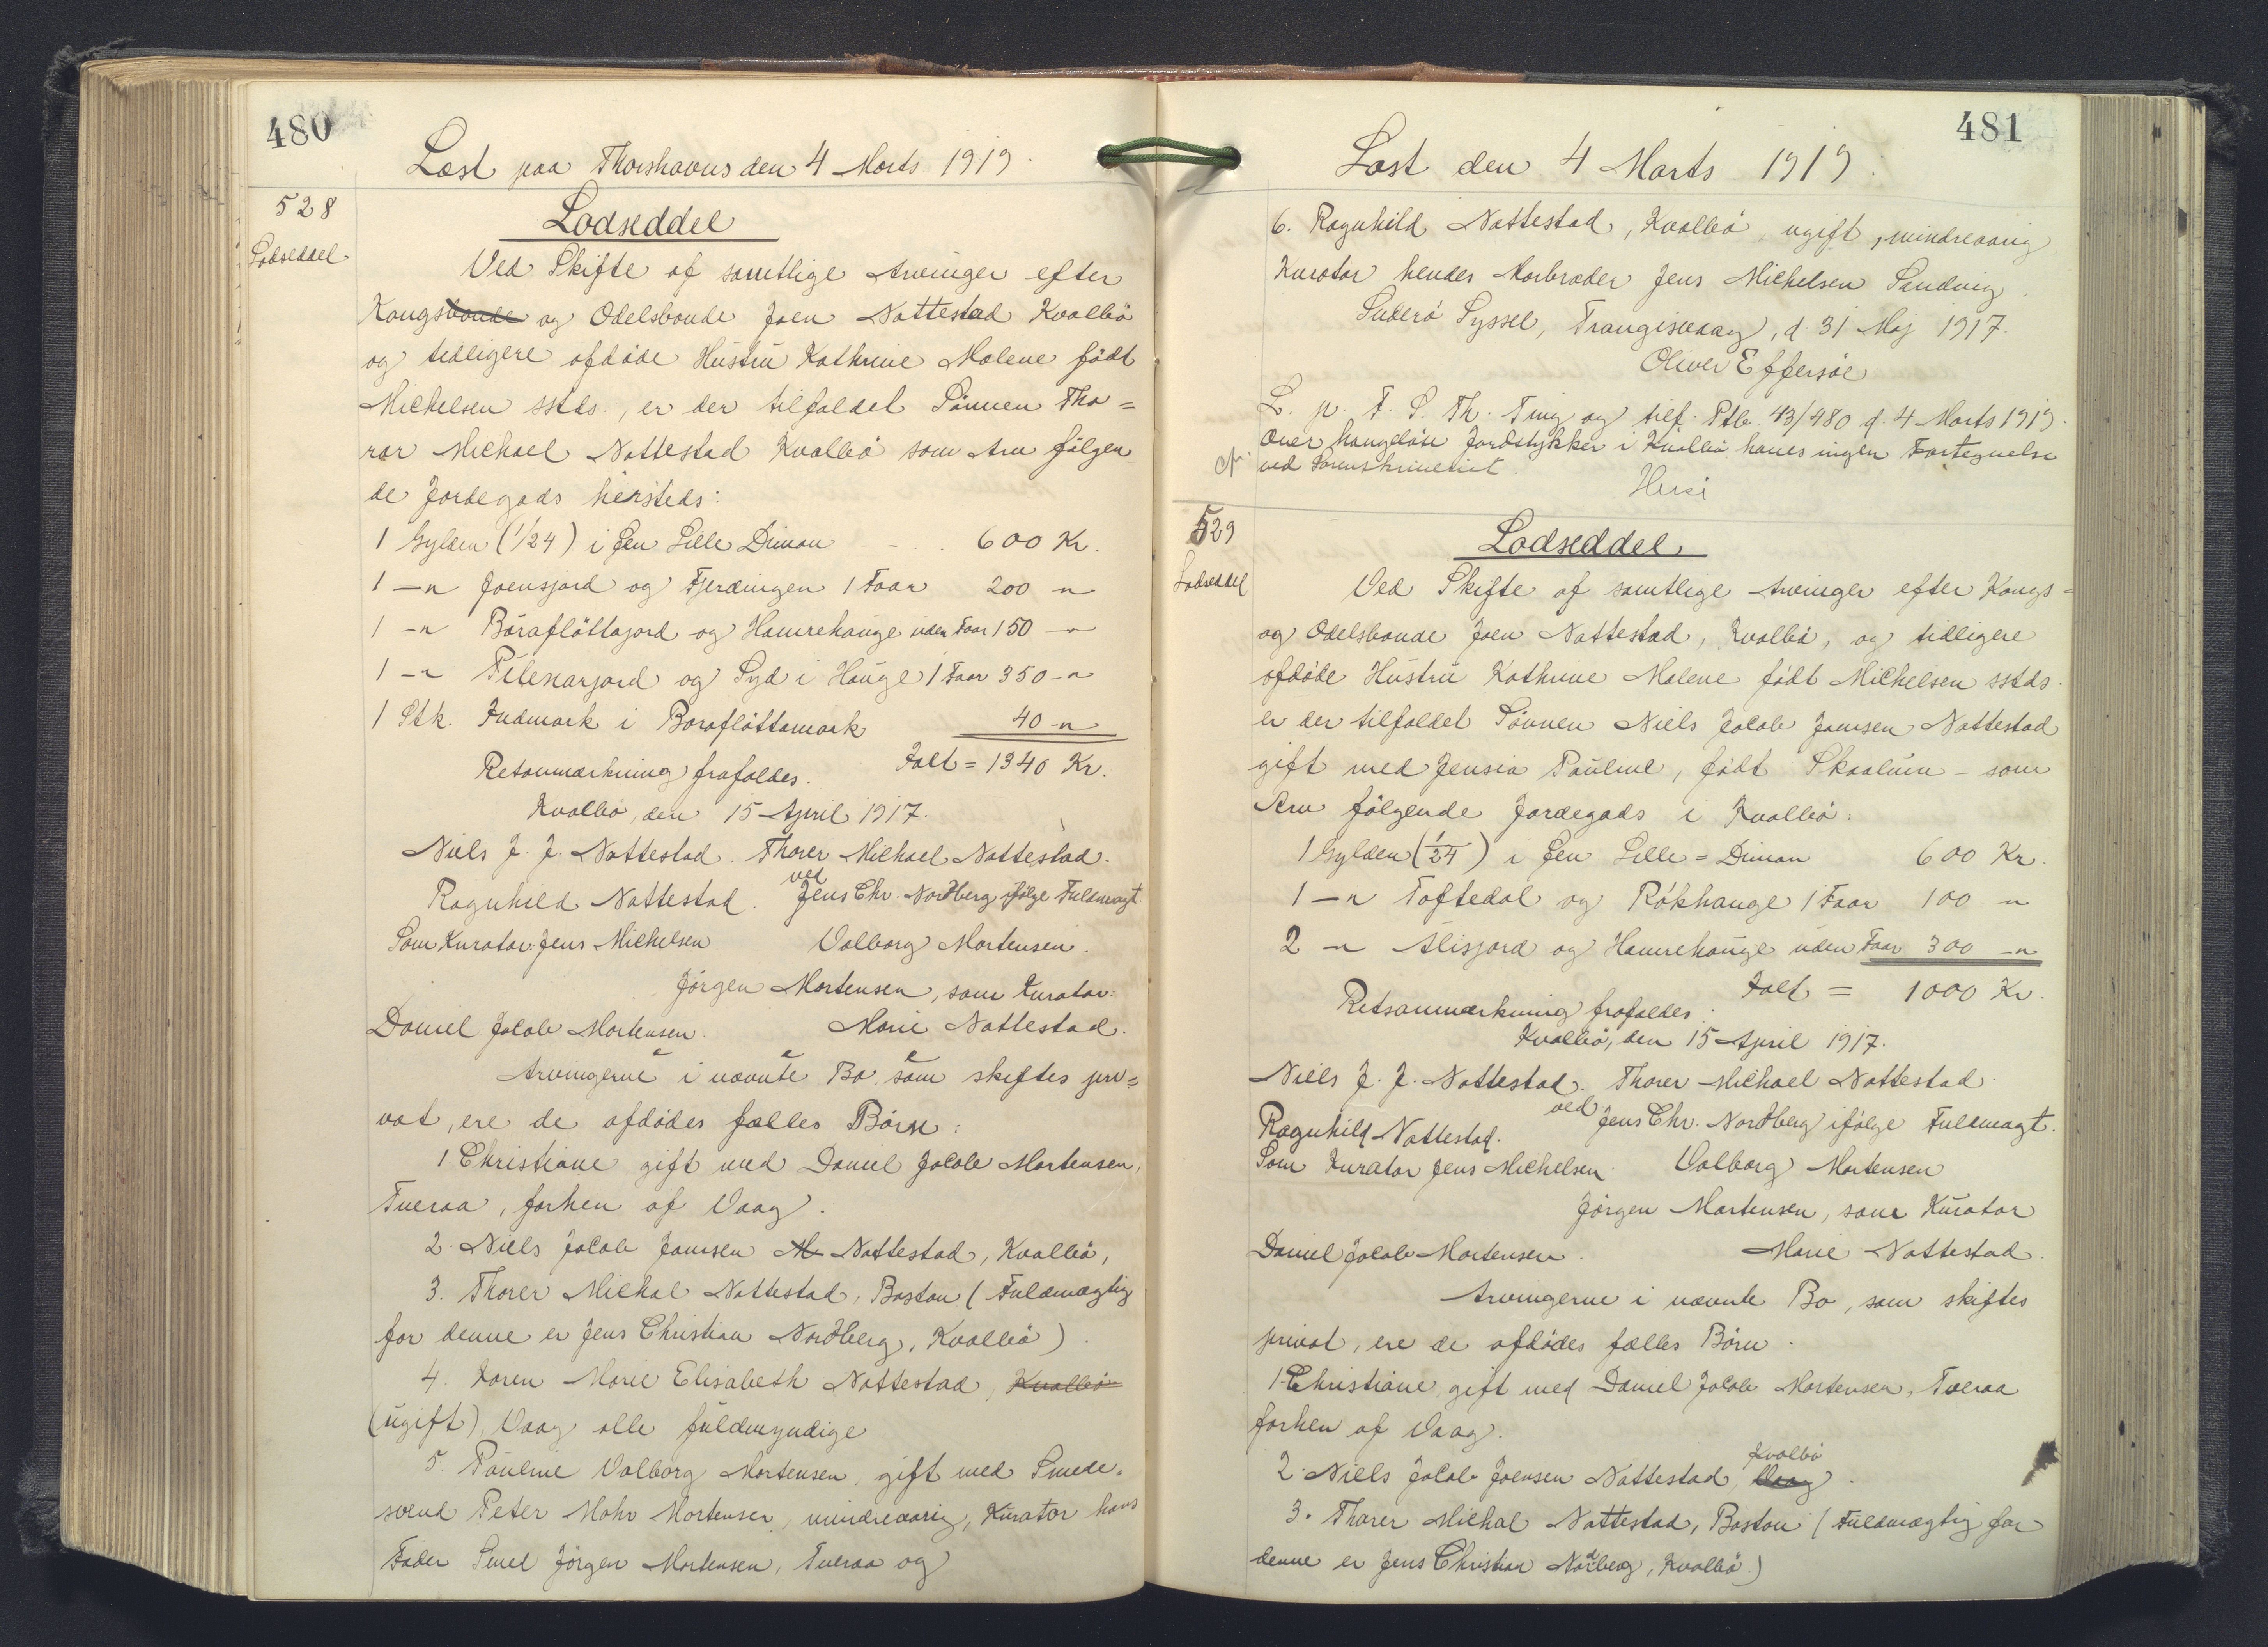 480
Læst paa Thorshavns den 4 Marts 1919.
528
Lodseddel
Lodseddel
Ved Skifte af samtlige Arvinger efter
Kongsbonde og Odelsbonde Joen Nattestad Kvalbö
og tidligere afdöde Hustru Kathrine Malene födt
Michelsen sstds., er der tilfaldet Sönnen Tho=
rar Michael Nattestad Kvalbö som Arv fölgen
de Jordegods hersteds:
1 Gylden (1/24) i Øen Lille Dimon - . . 600 Kr.
1 -"- Joensjord og Fjerdingen 1 Faar 200 -"-
1 -"- Böraflöttajord og Hamrehauge uden Faar 150 -"-
1 -"- Pilexarjord og Syd i Hauge 1 Faar 350 -"-
1 Stk. Indmark i Boraflöttamark 40 -"-
Retsanmærkning frafaldes. Ialt = 1340 Kr.
Kvalbö, den 15 April 1917.
Niels J. J. Nattestad. Thorer Michael Nattestad.
Ragnhild Nattestad. ved Jens Chr. Nordberg ifölge Fuldmagt
Som Kurator Jens Michelsen Valborg Mortensen.
Jörgen Mortensen, som Kurator.
Daniel Jacob Mortensen. Marie Nattestad.
Arvingerne i nævnte Bo, som skiftes pri=
vat, ere de afdödes fælles Börn:
1 Christiane gift med Daniel Jacob Mortensen,
Tveraa, forhen af Vaag.
2. Niels Jacob Joensen M Nattestad, Kvalbö,
3. Thorer Michal Nattestad, Boston (Fuldmægtig
for denne er Jens Christian Nordberg, Kvalbö)
4. Karen Marie Elisabeth Nattestad, Kvalbö
(ugift), Vaag alle fuldmyndige
5. Pauline Valborg Mortensen, gift med Smede-
svend Peter Mohr Mortensen, mindreaarig, Kurator hans
Fader Smed Jörgen Mortensen, Tveraa og
481
Læst den 4 Marts 1919.
6. Ragnhild Nattestad, Kvalbö, ugift, mindreaarig
Kurator hendes Morbroder Jens Michelsen Sandvig.
Suderö Syssel, Trangisvaag, d. 31 Maj 1917.
Oliver Effersöe
L. p. F. S. Th. Ting og tilf. Ptb. 43/480 d. 4 Marts 1919.
Over haugelöse Jordstykker i Kvalbö haves ingen Fortegnelse
ved Sorenskriveriet.
529
Lodseddel
Lodseddel
Ved Skifte af samtlige Arvinger efter Kongs=
og Odelsbonde Joen Nattestad, Kvalbö, og tidligere
afdöde Hustru Kathrine Malene födt Michelsen sstds.
er der tilfaldet Sönnen Niels Jacob Joensen Nattestad
gift med Jensia Pauline, födt Skaalum - som
Arv fölgende Jordegods i Kvalbö:
1 Gylden (1/24) i Øen Lille = Dimon 600 Kr.
1 -"- Toftedal og Rökhauge 1 Faar 100 -"-
2 -"- Alisjord og Hamrehauge uden Faar 300 -"-
Retsanmærkning frafaldes. Ialt = 1000 Kr.
Kvalbö, den 15 April 1917.
Niels J. J. Nattestad. Thorer Michael Nattestad
Ragnhild Nattestad. ved Jens Chr. Nordberg ifölge Fuldmagt.
Som Kurator Jens Michelsen. Valborg Mortensen
Jörgen Mortensen, som Kurator
Daniel Jacob Mortensen. Marie Nattestad.
Arvingerne i nævnte Bo, som skiftes
privat, ere de afdödes fælles Börn.
1. Christiane, gift med Daniel Jacob Mortensen, Tveraa
forhen af Vaag.
2. Niels Jacob Joensen Nattestad, Vaag Kvalbö.
3. Thorer Michal Nattestad, Boston (Fuldmægtig for
denne er Jens Christian Nordberg, Kvalbö.)